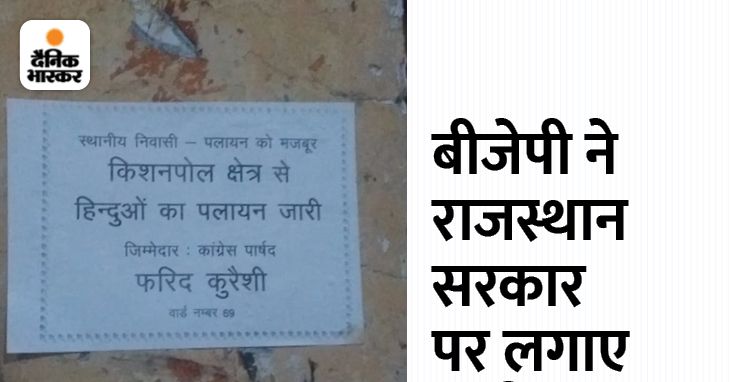 दैनिक
भास्कर
स्थानीय निवासी – पलायन को मजबूर
किशनपोल क्षेत्र से
हिन्दुओं का पलायन जारी
जिम्मेदार : कांग्रेस पार्षद
फरिद कुरैशी
वार्ड नम्बर 69
बीजेपी ने
राजस्थान
सरकार
पर लगाए